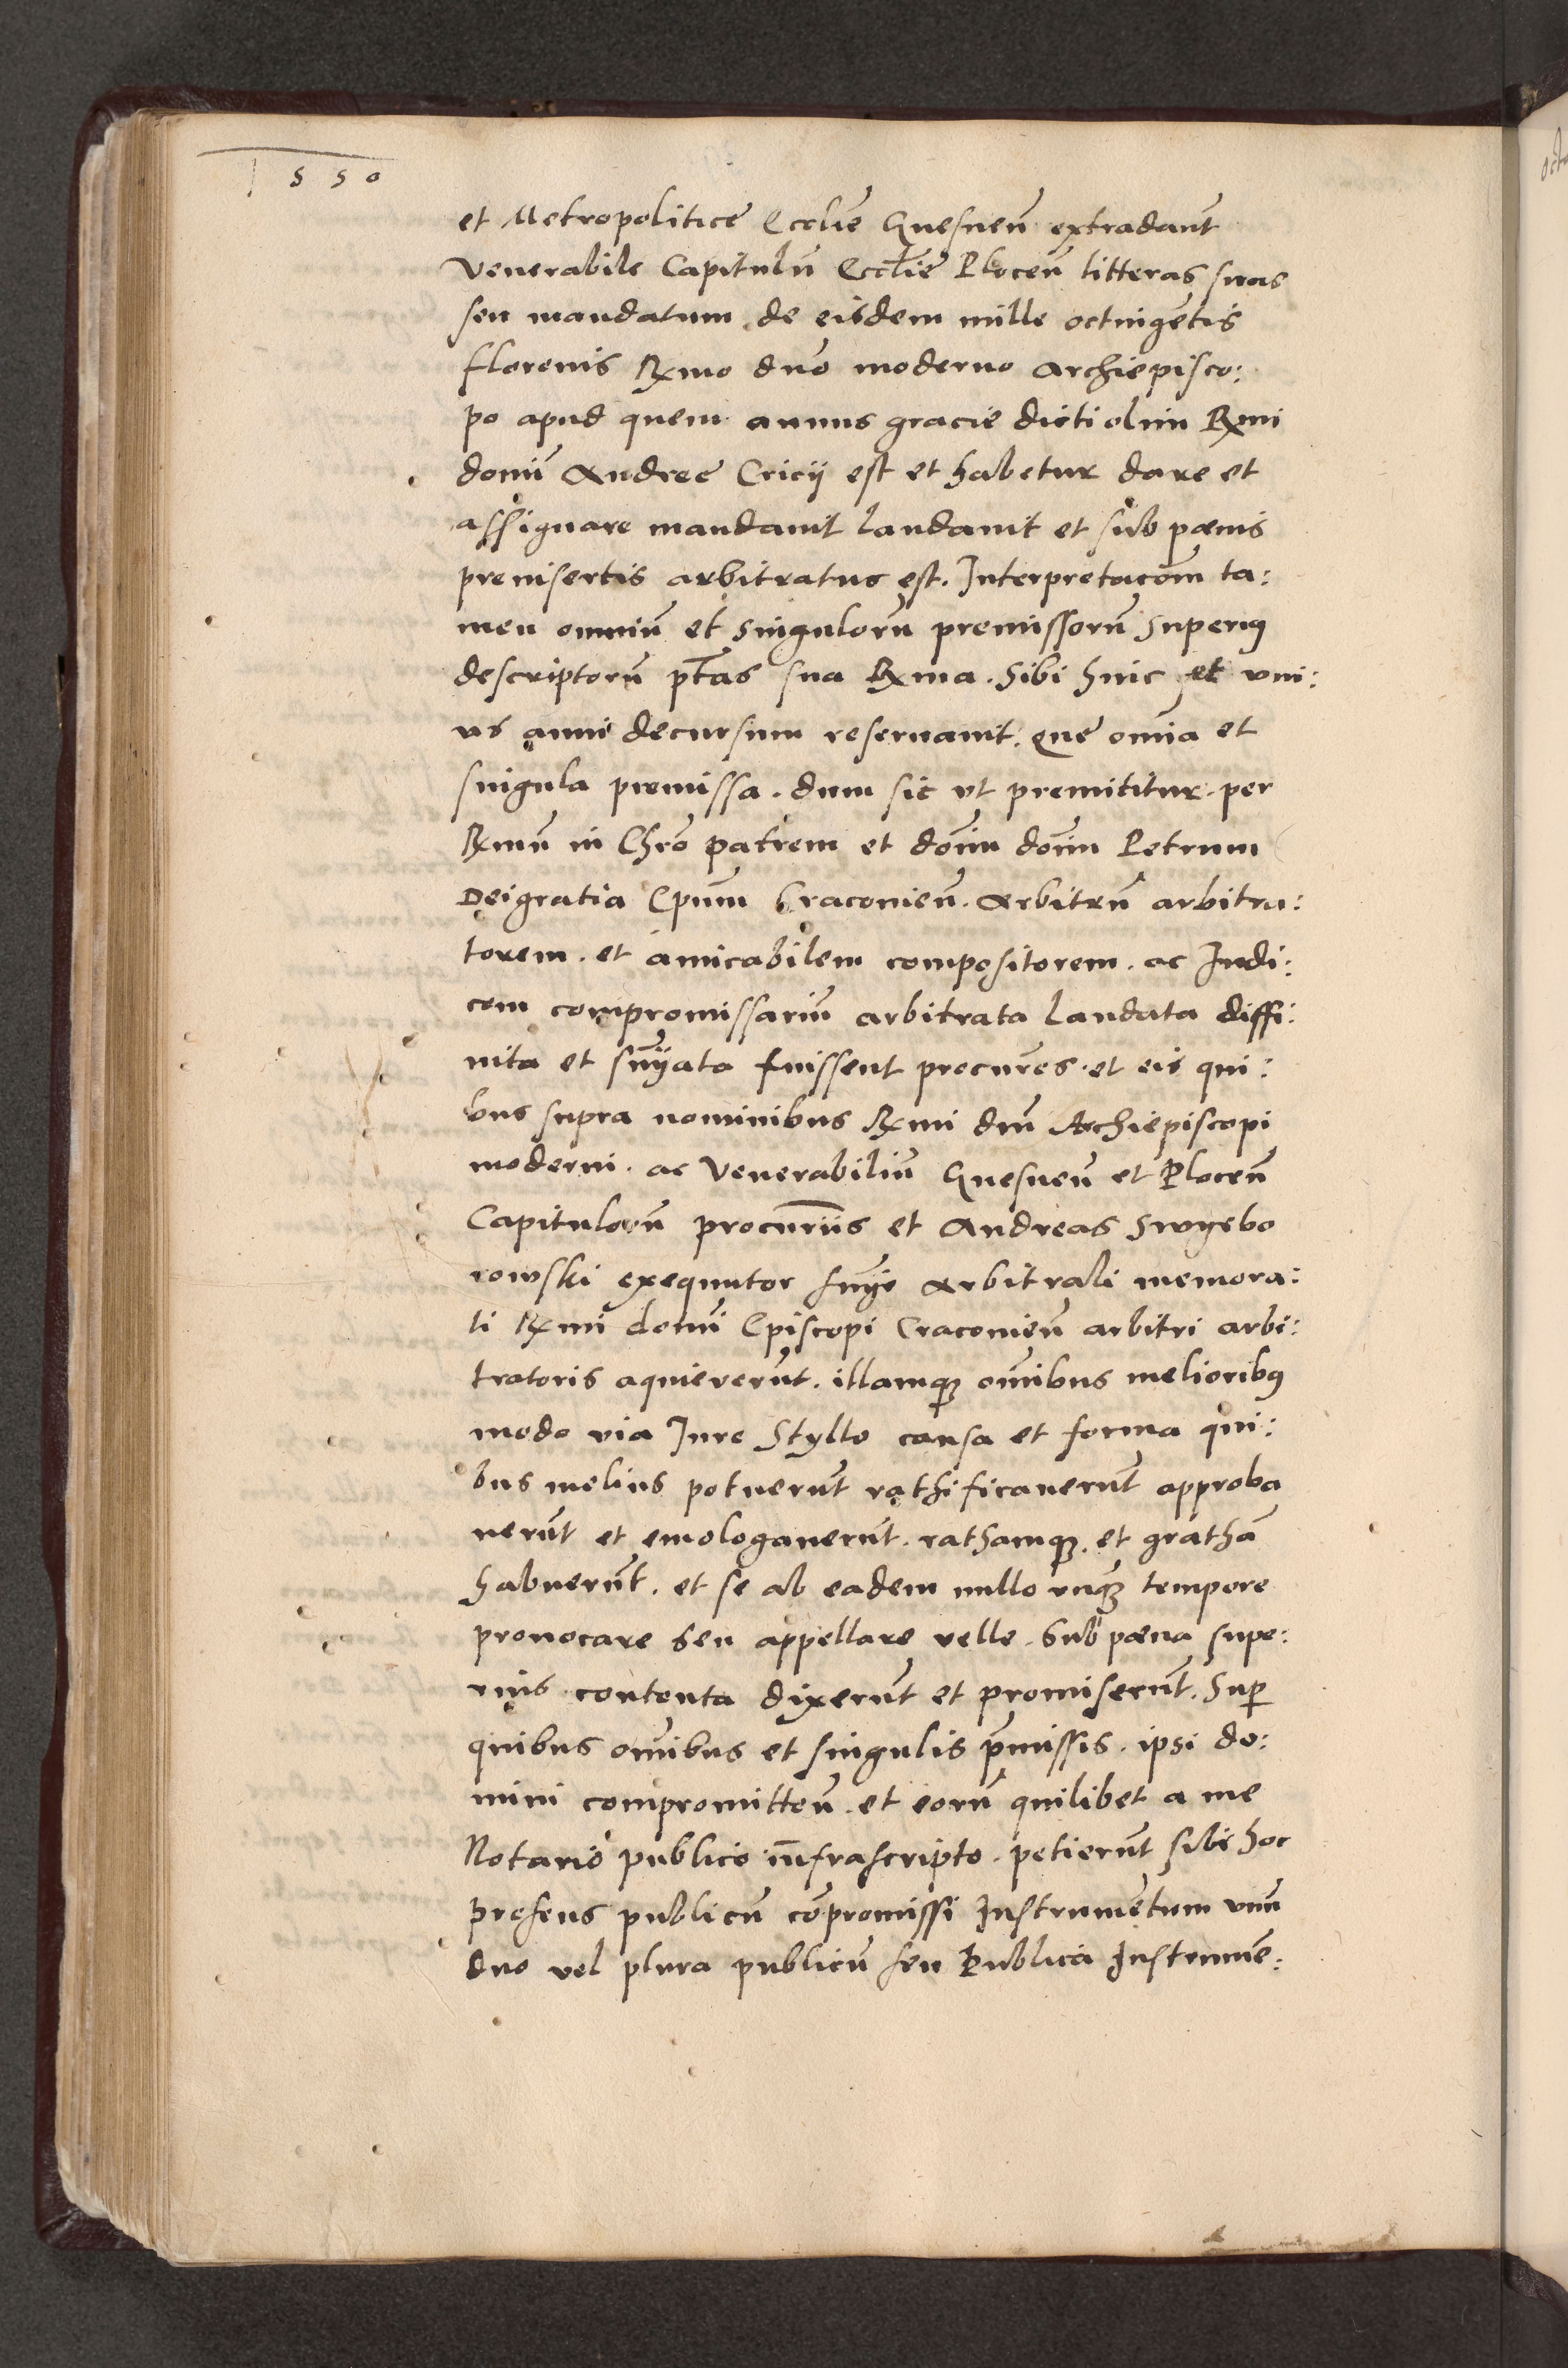 1550
et Metropolitice Ecclie Gnesneñ extradant
Venerabile Capitulū Ecclie Ploceñ litteras suas
seu mandatum de eisdem mille octingētis
florenis Rmo dno moderno Archiepisco:
po apud quem annus gracie dicti olim Rmi
domī Andree Cricij est et habetur dare et
assignare mandauit laudauit et sub pœnis
preinsertis arbitratus est. Interpretacōm ta:
men omniū et singulorū premissorū superiꝰ
descriptorū ptas sua Rma. sibi huic et vni:
us anni decursum reseruauit. que omīa et
singula premissa. dum sic vt premittitur. per
Rmū in Chro patrem et dōnm dōnm Petrum
Deigratia Epum Cracouieñ. Arbitrū arbitra:
torem. et amicabilem compositorem. ac Iudi:
cem compromissariū arbitrata laudata diffi:
nita et sn̄ijata fuissent procures. et eis qui:
bus supra nominibus Rmi dm̄ Archiepiscopi
moderni. ac Venerabiliū Gnesneñ et Plocēn
Capitulorū procurijs et Andreas Swyebo
rowski exequutor sn̄ije Arbitrali memora:
ti Rmi domī Episcopi Cracouieñ arbitri arbi:
tratoris aquieverūt. illamqꝫ omībus melioribꝰ
modo via Iure Styllo causa et forma qui:
bus melius potuerūt rathificauerūt approba
uerūt et emologauerūt. rathamqꝫ. et grathā
habuerūt. et se ab eadem nullo vnqꝫ tempore
prouocare seu appellare velle. Sub pœna supe:
rius contenta dixerūt et promiserūt. Suꝑ
quibus omībus et singulis p̄missis. ipsi do:
mini compromitteñ. et eorū quilibet a me
Notario publico infrascripto. petierūt sibi hoc
presens publicū cōpromissi Instrumētum vnū
duo vel plura publicū seu Publica Instrumē: